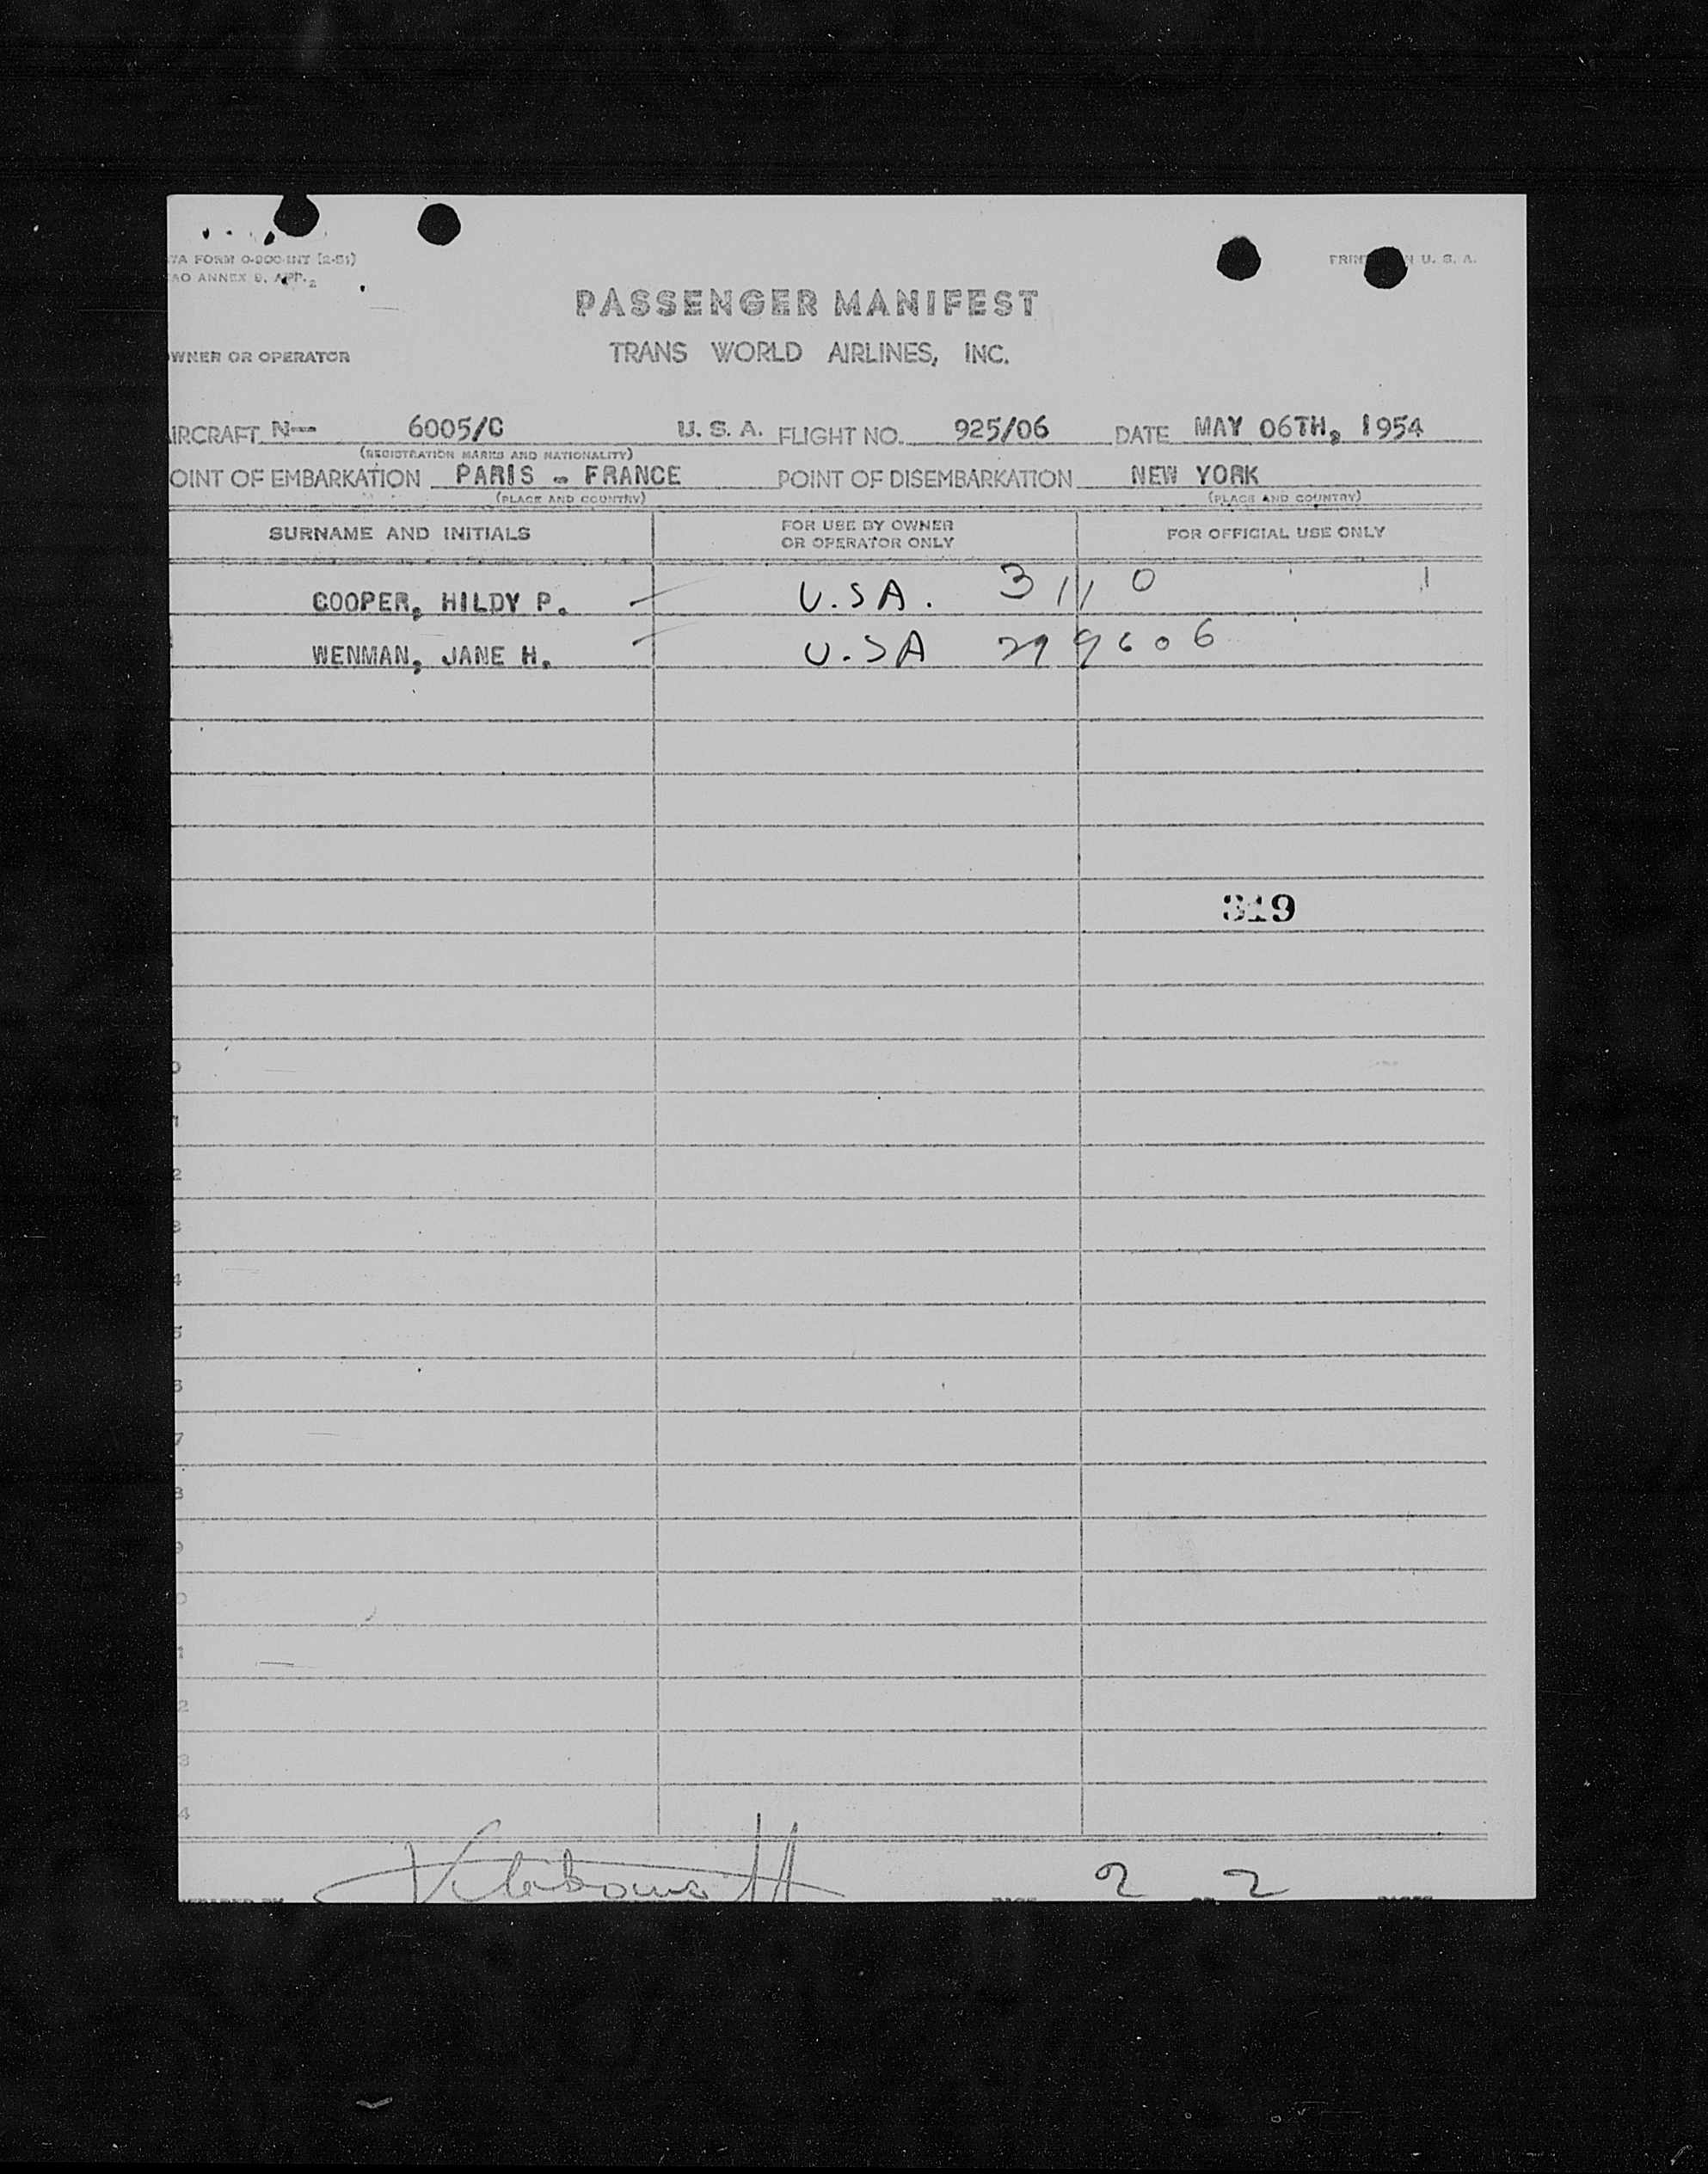 FORM O-800-INT (2-51)
PRIN U. S. A.
AO ANNEX 9, APP. 2
PASSENGER MANIFEST
WNER OR OPERATOR TRANS WORLD AIRLINES, INC.
IRCRAFT N— 6005/C U. S. A. FLIGHT NO. 925/06 DATE MAY 06TH, 1954
(REGISTRATION MARKS AND NATIONALITY)
OINT OF EMBARKATION PARIS - FRANCE POINT OF DISEMBARKATION NEW YORK
(PLACE AND COUNTRY) (PLACE AND COUNTRY)
SURNAME AND INITIALS FOR USE BY OWNER OR OPERATOR ONLY FOR OFFICIAL USE ONLY
COOPER, HILDY P. U.SA. 3110 1
WENMAN, JANE H. U.SA 299606
319
0
1
2
3
4
5
6
7
8
9
0
1
2
3
4
2 2